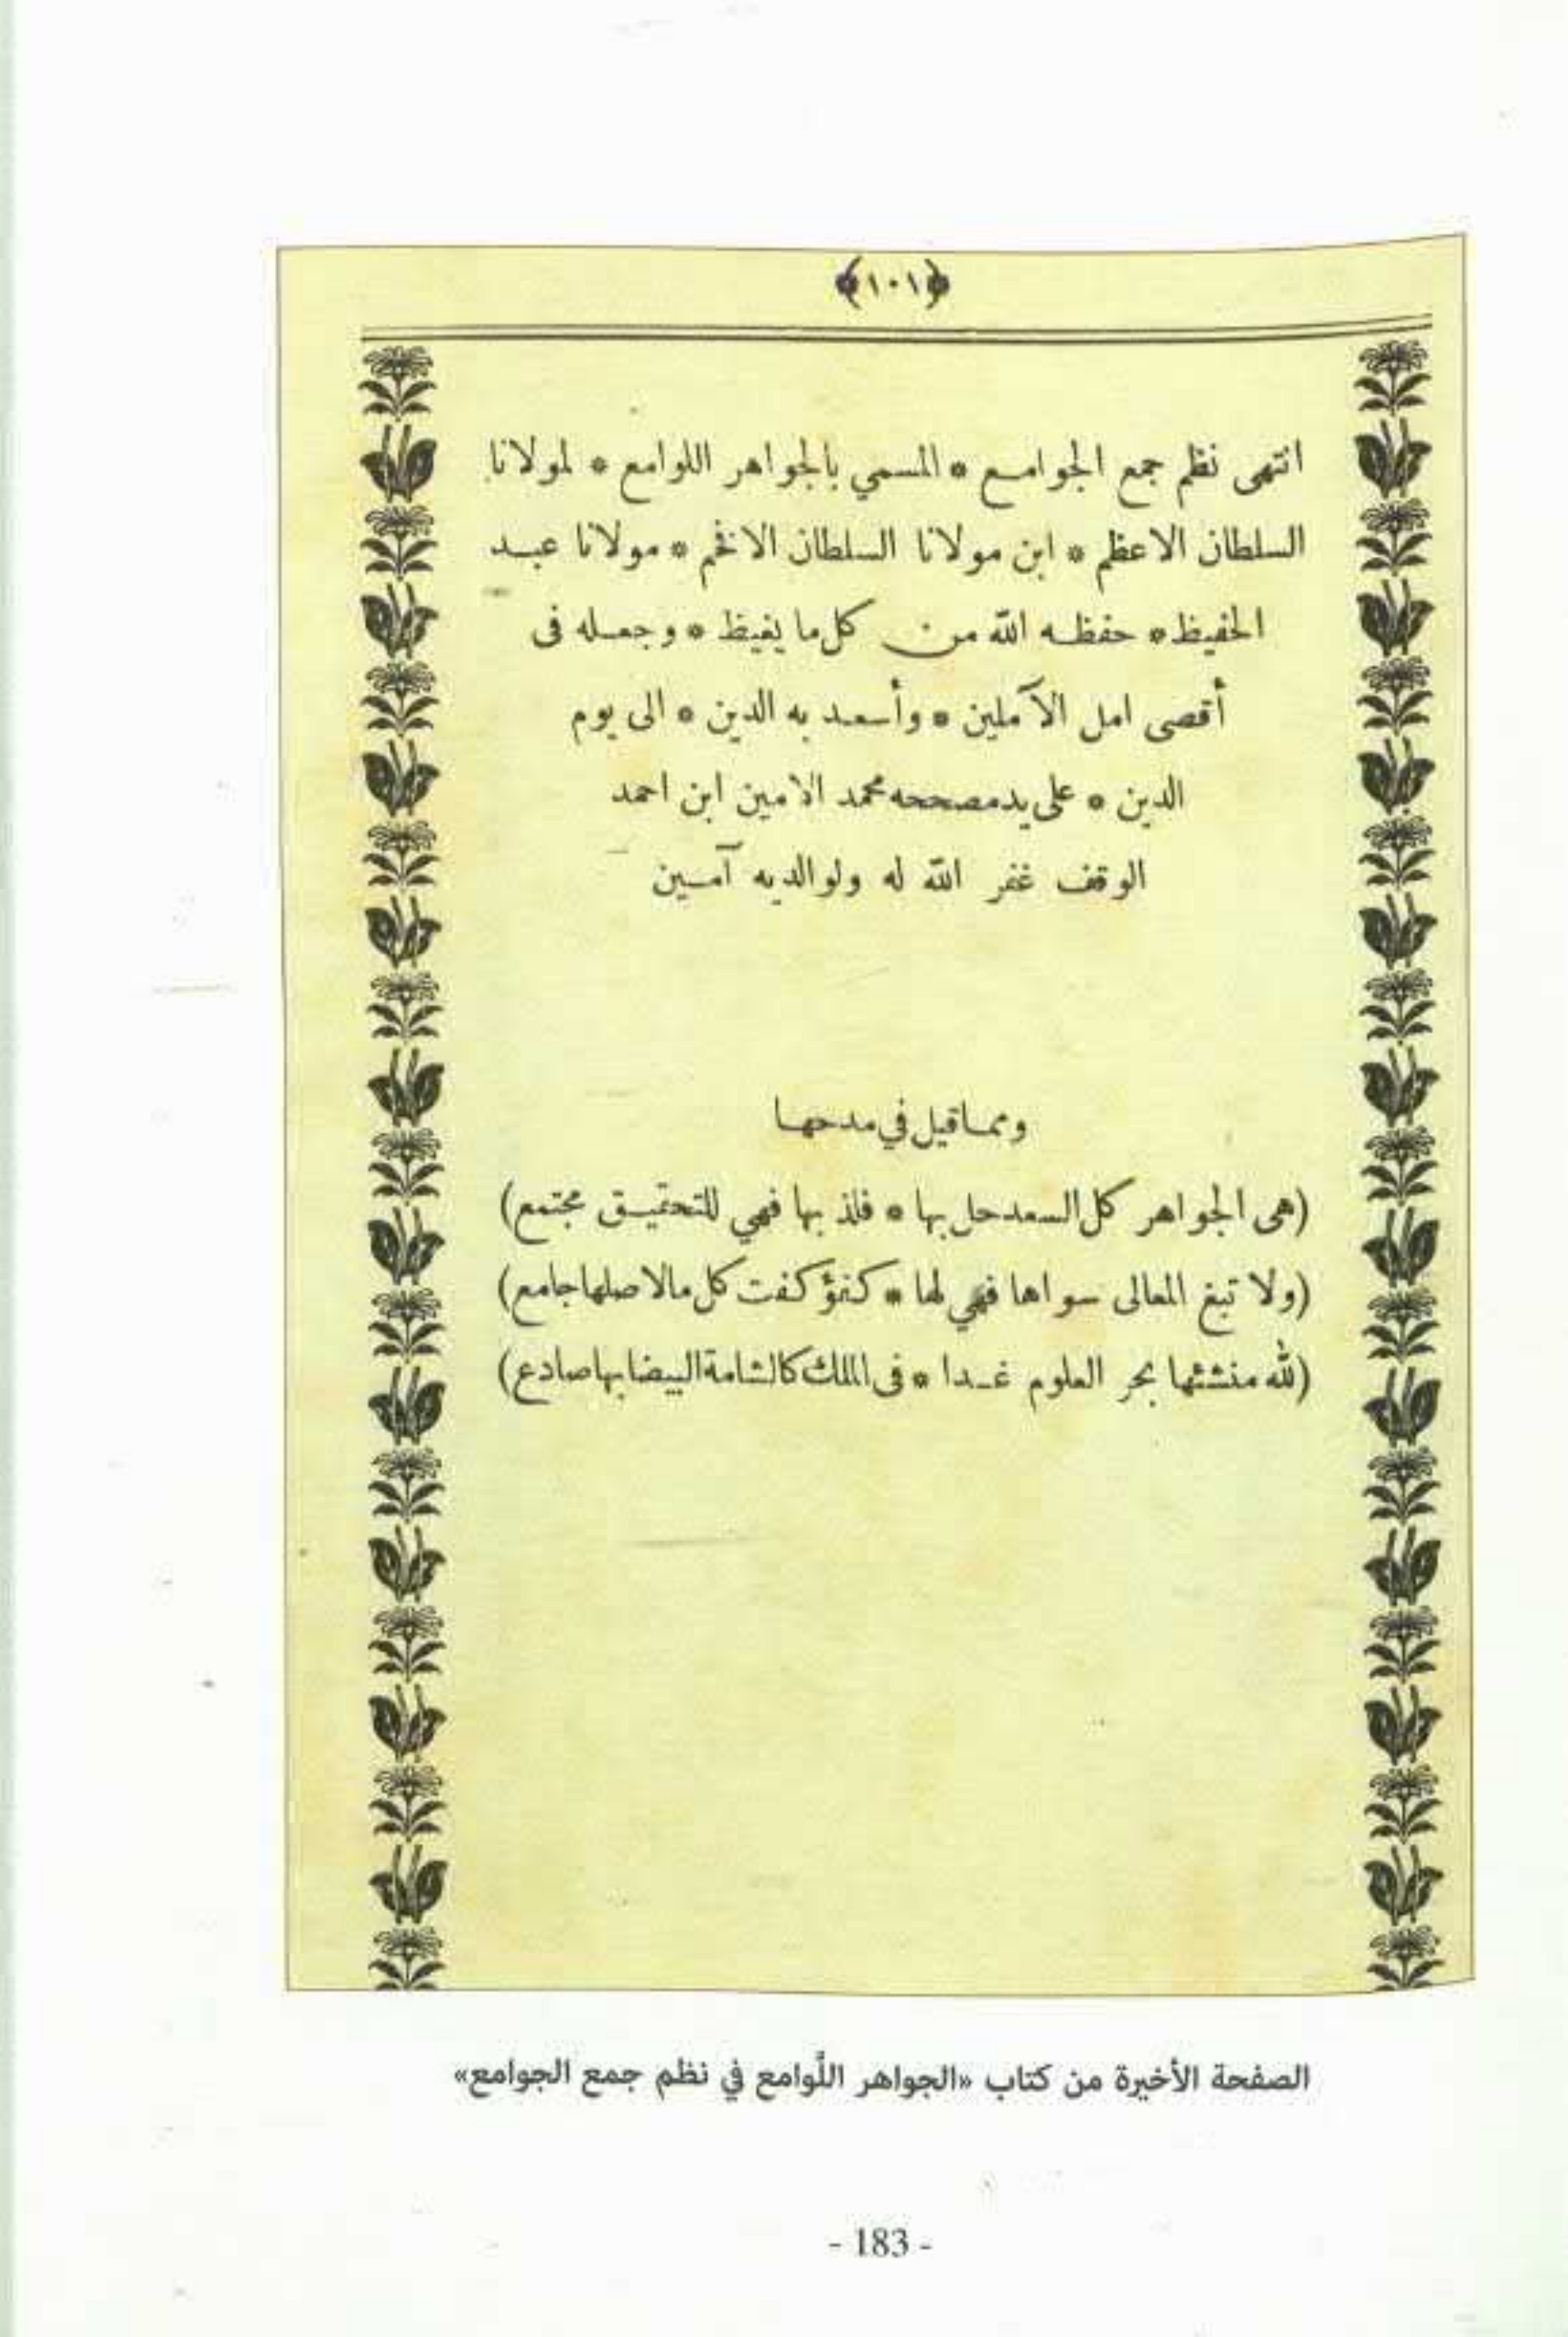 ﴿١٠١﴾
انتهى نظم جمع الجوامع * المسمي بالجواهر اللوامع * لمولانا
السلطان الاعظم * ابن مولانا السلطان الافخم * مولانا عبد
الحفيظ * حفظه الله من كل ما يغيظ * وجعله فى
أقصى امل الآملين * وأسعد به الدين * الى يوم
الدين * على يد مصححه محمد الامين ابن احمد
الوقف غفر الله له ولوالديه آمين
ومما قيل في مدحها
(هى الجواهر كل السعد حل بها * فلذ بها فهي للتحقيق مجتمع)
(ولا تبغ المعالى سواها فهي لها * كنفؤ كفت كل مالاصلها جامع)
(لله منشئها بحر العلوم غدا * فى الملك كالشامة البيضا بها صادع)
الصفحة الأخيرة من كتاب «الجواهر اللَّوامع في نظم جمع الجوامع»
- 183 -